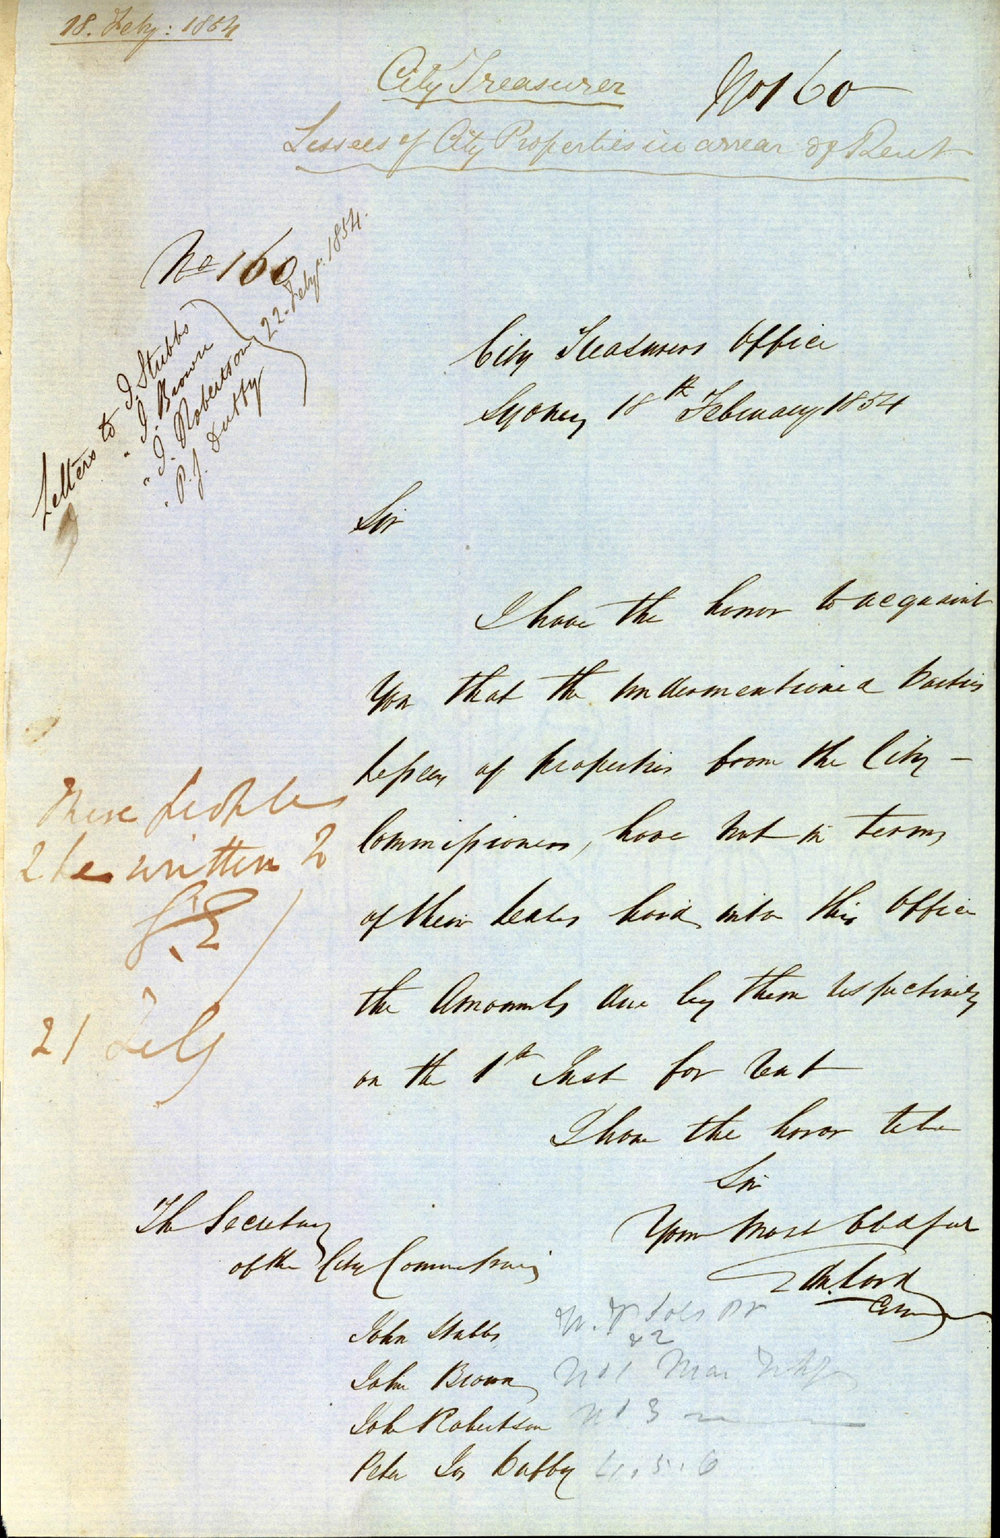 18. Feby: 1854
City Treasurer
No 160
Lessees of City Properties in arrear of Rent
No 160
Letters to J. Stubbs
" J. Brown
" J. Robertson
" P. J. Duffy
22. Feby. 1854.
City Treasurers Office
Sydney 18th February 1854
Sir
I have the honor to acquaint
You that the undermentioned Parties
Lessees of properties from the City
Commissioners, have not in terms
of their Leases paid into this Office
the Amounts due by them respectively
on the 1st Inst for rent
I have the honor to be
Sir
Your Most Obd
The Secretary
of the City Commissioners
These people
be written to
21 Feby
John Stubbs
& 2
John Brown No 1
John Robertson No 3
Peter Jos Duffy 4. 5. 6